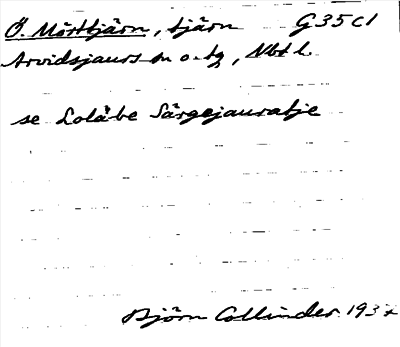 Ö. Mörttjärn, tjärn G35c1
Arvidsjaurs sn o. tg, Nbt l.
se Lolábe Särgejauratje
Björn Collinder 1937